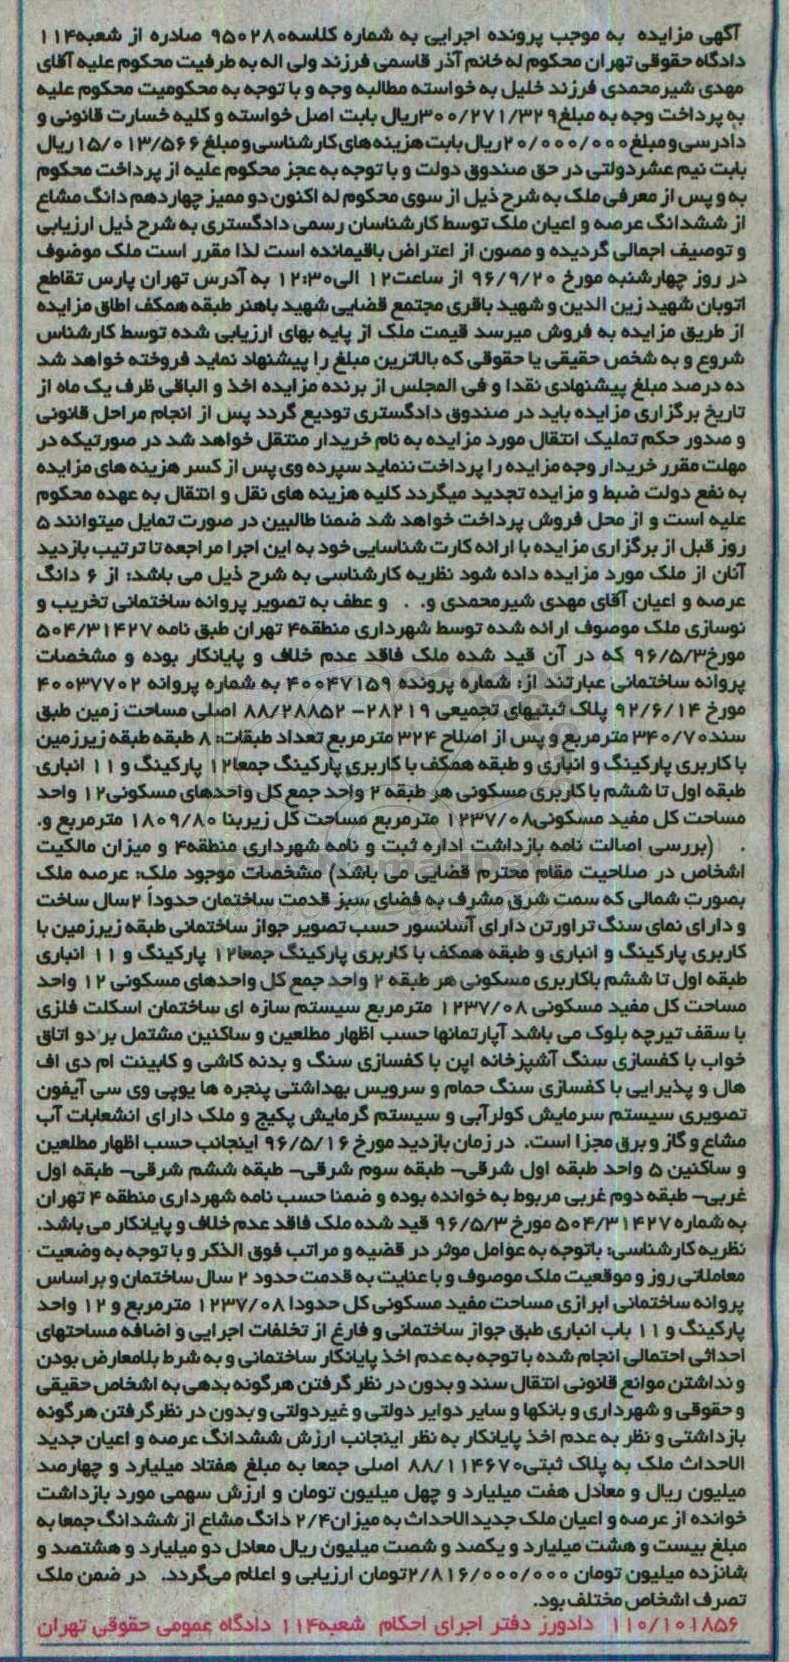 آگهی مزایده به موجب پرونده اجرایی به شماره کلاسه۹۵۰۲۸۰ صادره از شعبه۱۱۴
دادگاه حقوقی تهران محکوم له خانم آذر قاسمی فرزند ولی اله به طرفیت محکوم علیه آقای
مهدی شیرمحمدی فرزند خلیل به خواسته مطالبه وجه و با توجه به محکومیت محکوم علیه
به پرداخت وجه به مبلغ۳۰۰/۲۷۱/۳۲۹ریال بابت اصل خواسته و کلیه خسارت قانونی و
دادرسی و مبلغ۲۰/۰۰۰/۰۰۰ریال بابت هزینه های کارشناسی و مبلغ ۱۵/۰۱۳/۵۶۶ ریال
بابت نیم عشر دولتی در حق صندوق دولت و با توجه به عجز محکوم علیه از پرداخت محکوم
به و پس از معرفی ملک به شرح ذیل از سوی محکوم له اکنون دو ممیز چهاردهم دانگ مشاع
از ششدانگ عرصه و اعیان ملک توسط کارشناسان رسمی دادگستری به شرح ذیل ارزیابی
و توصیف اجمالی گردیده و مصون از اعتراض باقیمانده است لذا مقرر است ملک موضوف
در روز چهارشنبه مورخ ۹۶/۹/۲۰ از ساعت۱۲ الی۱۲:۳۰ به آدرس تهران پارس تقاطع
اتوبان شهید زین الدین و شهید باقری مجتمع قضایی شهید باهنر طبقه همکف اطاق مزایده
از طریق مزایده به فروش میرسد قیمت ملک از پایه بهای ارزیابی شده توسط کارشناس
شروع و به شخص حقیقی یا حقوقی که بالاترین مبلغ را پیشنهاد نماید فروخته خواهد شد
ده درصد مبلغ پیشنهادی نقدا و فی المجلس از برنده مزایده اخذ و الباقی ظرف یک ماه از
تاریخ برگزاری مزایده باید در صندوق دادگستری تودیع گردد پس از انجام مراحل قانونی
و صدور حکم تملیک انتقال مورد مزایده به نام خریدار منتقل خواهد شد در صورتیکه در
مهلت مقرر خریدار وجه مزایده را پرداخت ننماید سپرده وی پس از کسر هزینه های مزایده
به نفع دولت ضبط و مزایده تجدید میگردد کلیه هزینه های نقل و انتقال به عهده محکوم
علیه است و از محل فروش پرداخت خواهد شد ضمنا طالبین در صورت تمایل میتوانند ۵
روز قبل از برگزاری مزایده با ارائه کارت شناسایی خود به این اجرا مراجعه تا ترتیب بازدید
آنان از ملک مورد مزایده داده شود نظریه کارشناسی به شرح ذیل می باشد: از ۶ دانگ
عرصه و اعیان آقای مهدی شیرمحمدی و. . و عطف به تصویر پروانه ساختمانی تخریب و
نوسازی ملک موصوف ارائه شده توسط شهرداری منطقه۴ تهران طبق نامه ۵۰۴/۳۱۴۲۷
مورخ۹۶/۵/۳ که در آن قید شده ملک فاقد عدم خلاف و پایانکار بوده و مشخصات
پروانه ساختمانی عبارتند از: شماره پرونده ۴۰۰۴۷۱۵۹ به شماره پروانه ۴۰۰۳۷۷۰۲
مورخ ۹۲/۶/۱۴ پلاک ثبتیهای تجمیعی ۲۸۲۱۹- ۸۸/۲۸۸۵۲ اصلی مساحت زمین طبق
سند۳۴۰/۷۰ مترمربع و پس از اصلاح ۳۲۴ مترمربع تعداد طبقات: ۸ طبقه طبقه زیرزمین
با کاربری پارکینگ و انباری و طبقه همکف با کاربری پارکینگ جمعا۱۲ پارکینگ و ۱۱ انباری
طبقه اول تا ششم با کاربری مسکونی هر طبقه ۲ واحد جمع کل واحدهای مسکونی۱۲ واحد
مساحت کل مفید مسکونی۱۲۳۷/۰۸ مترمربع مساحت کل زیربنا ۱۸۰۹/۸۰ مترمربع و.
. (بررسی اصالت نامه بازداشت اداره ثبت و نامه شهرداری منطقه۴ و میزان مالکیت
اشخاص در صلاحیت مقام محترم قضایی می باشد) مشخصات موجود ملک: عرصه ملک
بصورت شمالی که سمت شرق مشرف به فضای سبز قدمت ساختمان حدوداً ۲سال ساخت
و دارای نمای سنگ تراورتن دارای آسانسور حسب تصویر جواز ساختمانی طبقه زیرزمین با
کاربری پارکینگ و انباری و طبقه همکف با کاربری پارکینگ جمعا۱۲ پارکینگ و ۱۱ انباری
طبقه اول تا ششم باکاربری مسکونی هر طبقه ۲ واحد جمع کل واحدهای مسکونی ۱۲ واحد
مساحت کل مفید مسکونی ۱۲۳۷/۰۸ مترمربع سیستم سازه ای ساختمان اسکلت فلزی
با سقف تیرچه بلوک می باشد آپارتمانها حسب اظهار مطلعین و ساکنین مشتمل بر دو اتاق
خواب با کفسازی سنگ آشپزخانه اپن با کفسازی سنگ و بدنه کاشی و کابینت ام دی اف
هال و پذیرایی با کفسازی سنگ حمام و سرویس بهداشتی پنجره ها یوپی وی سی آیفون
تصویری سیستم سرمایش کولرآبی و سیستم گرمایش پکیج و ملک دارای انشعابات آب
مشاع و گاز و برق مجزا است. در زمان بازدید مورخ ۹۶/۵/۱۶ اینجانب حسب اظهار مطلعین
و ساکنین ۵ واحد طبقه اول شرقی– طبقه سوم شرقی– طبقه ششم شرقی– طبقه اول
غربی– طبقه دوم غربی مربوط به خوانده بوده و ضمنا حسب نامه شهرداری منطقه ۴ تهران
به شماره ۵۰۴/۳۱۴۲۷ مورخ ۹۶/۵/۳ قید شده ملک فاقد عدم خلاف و پایانکار می باشد.
نظریه کارشناسی: باتوجه به عوامل موثر در قضیه و مراتب فوق الذکر و با توجه به وضعیت
معاملاتی روز و موقعیت ملک موصوف و با عنایت به قدمت حدود ۲ سال ساختمان و بر اساس
پروانه ساختمانی ابرازی مساحت مفید مسکونی کل حدودا ۱۲۳۷/۰۸ مترمربع و ۱۲ واحد
پارکینگ و ۱۱ باب انباری طبق جواز ساختمانی و فارغ از تخلفات اجرایی و اضافه مساحتهای
احداثی احتمالی انجام شده با توجه به عدم اخذ پایانکار ساختمانی و به شرط بلامعارض بودن
و نداشتن موانع قانونی انتقال سند و بدون در نظر گرفتن هرگونه بدهی به اشخاص حقیقی
و حقوقی و شهرداری و بانکها و سایر دوایر دولتی و غیردولتی و بدون در نظرگرفتن هرگونه
بازداشتی و نظر به عدم اخذ پایانکار به نظر اینجانب ارزش ششدانگ عرصه و اعیان جدید
الاحداث ملک به پلاک ثبتی۸۸/۱۱۴۶۷۰ اصلی جمعا به مبلغ هفتاد میلیارد و چهارصد
میلیون ریال و معادل هفت میلیارد و چهل میلیون تومان و ارزش سهمی مورد بازداشت
خوانده از عرصه و اعیان ملک جدیدالاحداث به میزان۲/۴ دانگ مشاع از ششدانگ جمعا به
مبلغ بیست و هشت میلیارد و یکصد و شصت میلیون ریال معادل دو میلیارد و هشتصد و
شانزده میلیون تومان ۲/۸۱۶/۰۰۰/۰۰۰تومان ارزیابی و اعلام می‌گردد. در ضمن ملک
تصرف اشخاص مختلف بود.
۱۱۰/۱۰۱۸۵۶ دادورز دفتر اجرای احکام شعبه۱۱۴ دادگاه عمومی حقوقی تهران